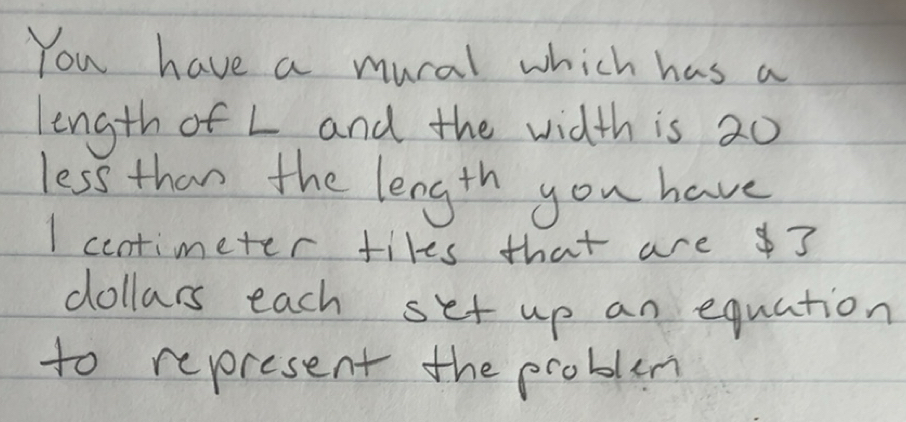 You have a mural which has a
length of L and the width is 20
less than the length you have
1 centimeter tiles that are $3
dollars each set up an equation
to represent the problem